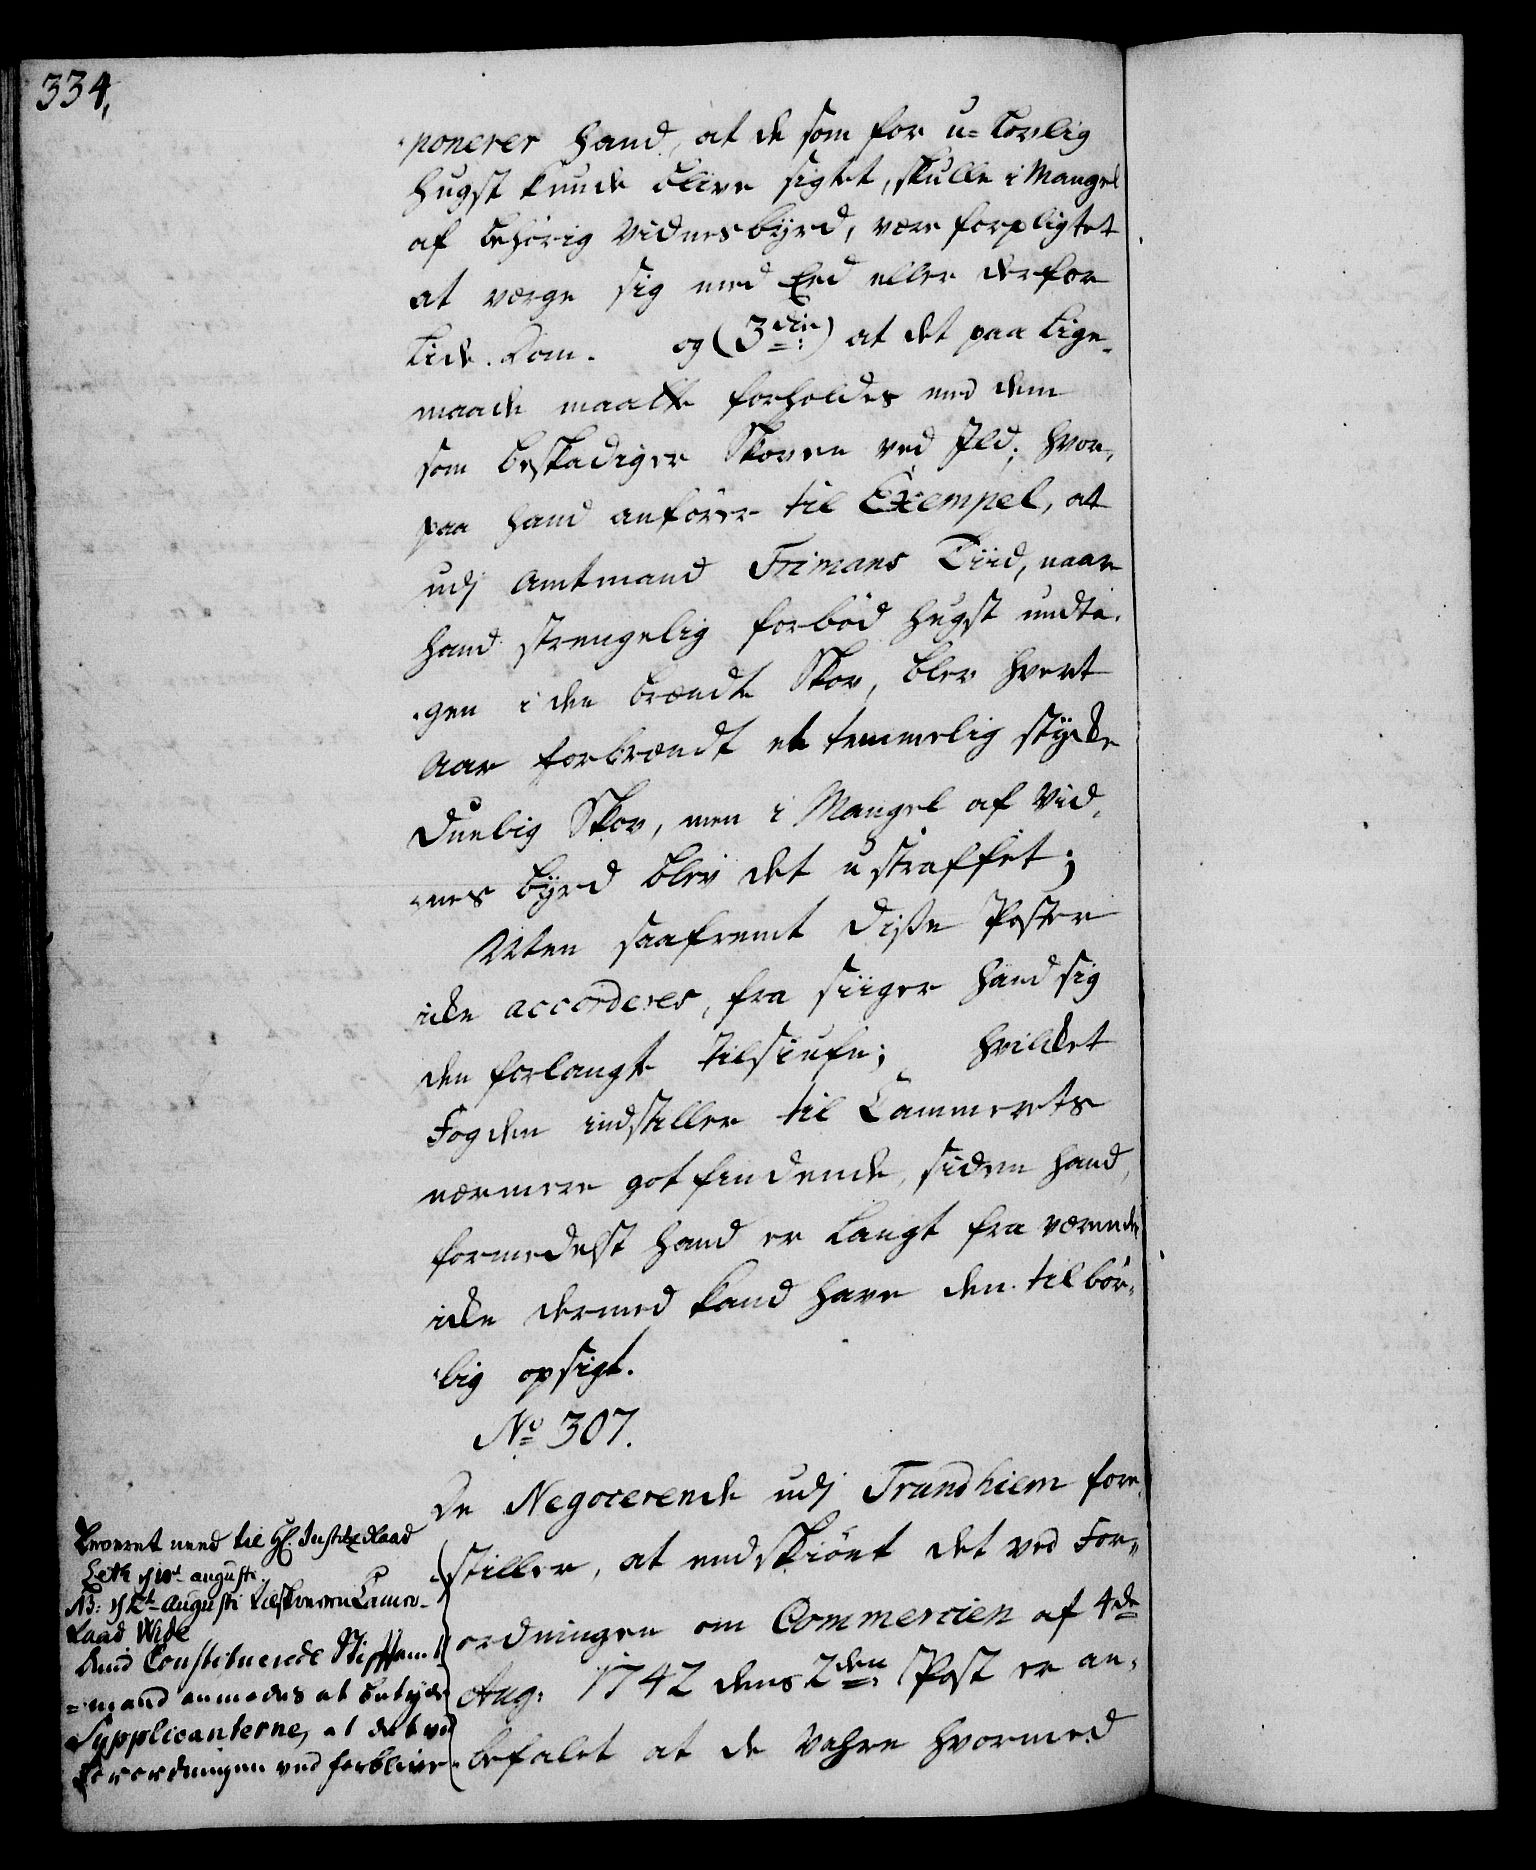 334,
ponerer hand, at de som for u-lovlig
hugst kunde blive sigtet, skulle i Mangel
af behörig vidnesbyrd, være forpligtet
at værge sig med Eed eller derfor
lide. Dom. og (3die) at det paa lige-
maade maatte forholdes med dem
som beskadiger Skoven ved Ild; hvor-
paa hand anförer til Exempel, at
udj Amtmand Frimans Tiid, naar
hand strengelig forböd hugst undta-
gen i den brændte Skov, blev hvert
Aar forbrændt et temmelig stycke
Duelig Skov, men i Mangel af Vid-
nes byrd blev det ustraffet;
Men saafremt disse Poster
icke accorderes, fra siiger hand sig
den forlangte tilsiufn; hvilcket
Fogden indstiller til Cammerets
nærmere got findende, siden hand,
formedelst hand er langt fra værende
icke dermed kand have den tilbör-
lig opsigt.
No 307.
De Negocerende udj Trundhiem fore-
stiller, at endskiönt det ved For-
ordningen om Commercien af 4de
Aug: 1742 dens 2den Post er an-
befalet at de Vahre hvormed
Leveret need til Hr. Justitz Raad
Leth d augusti.
NB: d augusti tilskreven Camer-
Raad Wide
Constituerede Stiftamt
-mand anmodes at betyde
Supplicanterne, at det ved
Forordningen ved forbliver.